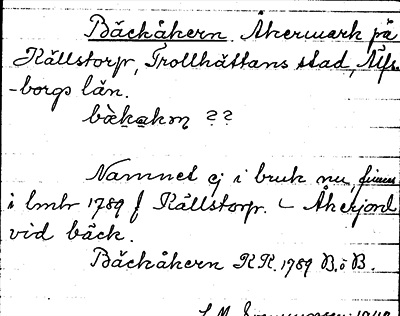 Bäckåkern. Åkermark på
Källstorp, Trollhättans stad, Älfs-
-borgs län.
bàkakɷn ??
Namnet ej i bruk nu, finnes
i lmtr 1789 f Källstorp. – Åkerjord
vid bäck.
Bäckåkern KK. 1789 B. ö B.